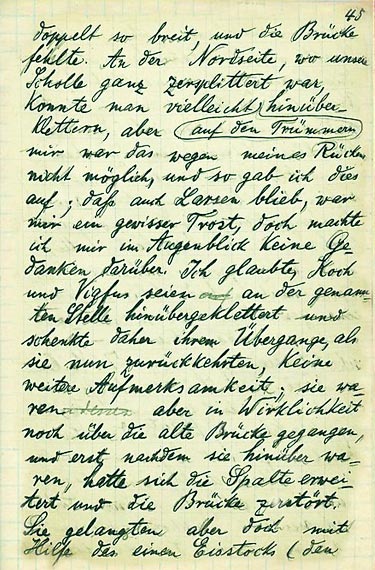 45
doppelt so breit, und die Brücke
fehlte. An der Nordseite, wo unsere
Scholle ganz zersplittert war,
konnte man vielleicht hinüber
klettern, aber (auf den Trümmern)
mir war das wegen meines Rückens
nicht möglich, und so gab ich dies
auf; daß auch Larsen blieb, war
mir ein gewisser Trost, doch machte
ich mir im Augenblick keine Ge-
danken darüber. Ich glaubte, Koch
und Vigfus seien an der genann-
ten Stelle hinübergeklettert und
schenkte daher ihrem Übergange, als
sie nun zurückkehrten, keine
weitere Aufmerksamkeit; sie wa-
ren aber in Wirklichkeit
noch über die alte Brücke gegangen,
und erst nachdem sie hinüber wa-
ren, hatte sich die Spalte erwei-
tert und die Brücke zerstört.
Sie gelangten aber doch mit
Hilfe des einen Eisstocks (den